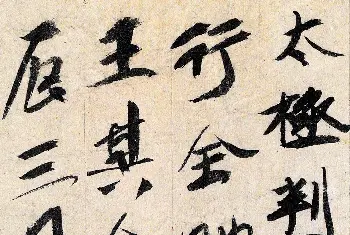 太極判
行全
王其
辰三